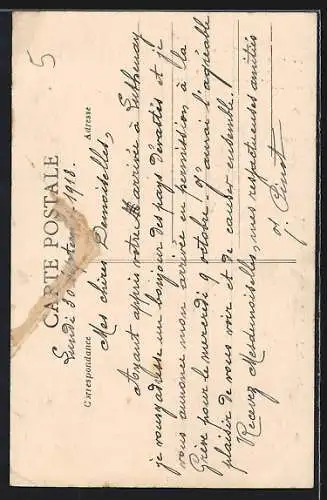 5
CARTE POSTALE
Correspondance
Adresse
Lundi 30 1918.
Mes chères Demoiselles,
Ayant appris votre arrivée à
je vous adresse un bonjour des pays dévastés et je
vous annonce mon arrivée en permission à la
Grève pour le mercredi 9 octobre. J'aurai l'agréable
plaisir de vous voir et de causer ensemble.
Recevez Mesdemoiselles, mes respectueuses amitiés